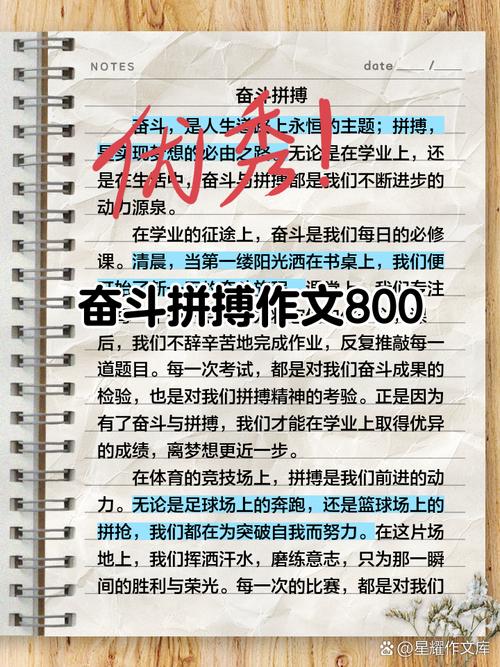 NOTES
date ____ / ____
奋斗拼搏
优秀！
奋斗，是人生道路上永恒的主题；拼搏，
是实现梦想的必由之路。无论是在学业上，还
是在生活中，奋斗与拼搏都是我们不断进步的
动力源泉。
在学业的征途上，奋斗是我们每日的必修
课。清晨，当第一缕阳光洒在书桌上，我们便
上，我们专注
奋斗拼搏作文800
后，我们不辞辛苦地完成作业，反复推敲每一
道题目。每一次考试，都是对我们奋斗成果的
检验，也是对我们拼搏精神的考验。正是因为
有了奋斗与拼搏，我们才能在学业上取得优异
的成绩，离梦想更近一步。
在体育的竞技场上，拼搏是我们前进的动
力。无论是足球场上的奔跑，还是篮球场上的
拼抢，我们都在为突破自我而努力。在这片场
地上，我们挥洒汗水，磨练意志，只为那一瞬
间的胜利与荣光。每一次的比赛，都是对我们
星耀作文库